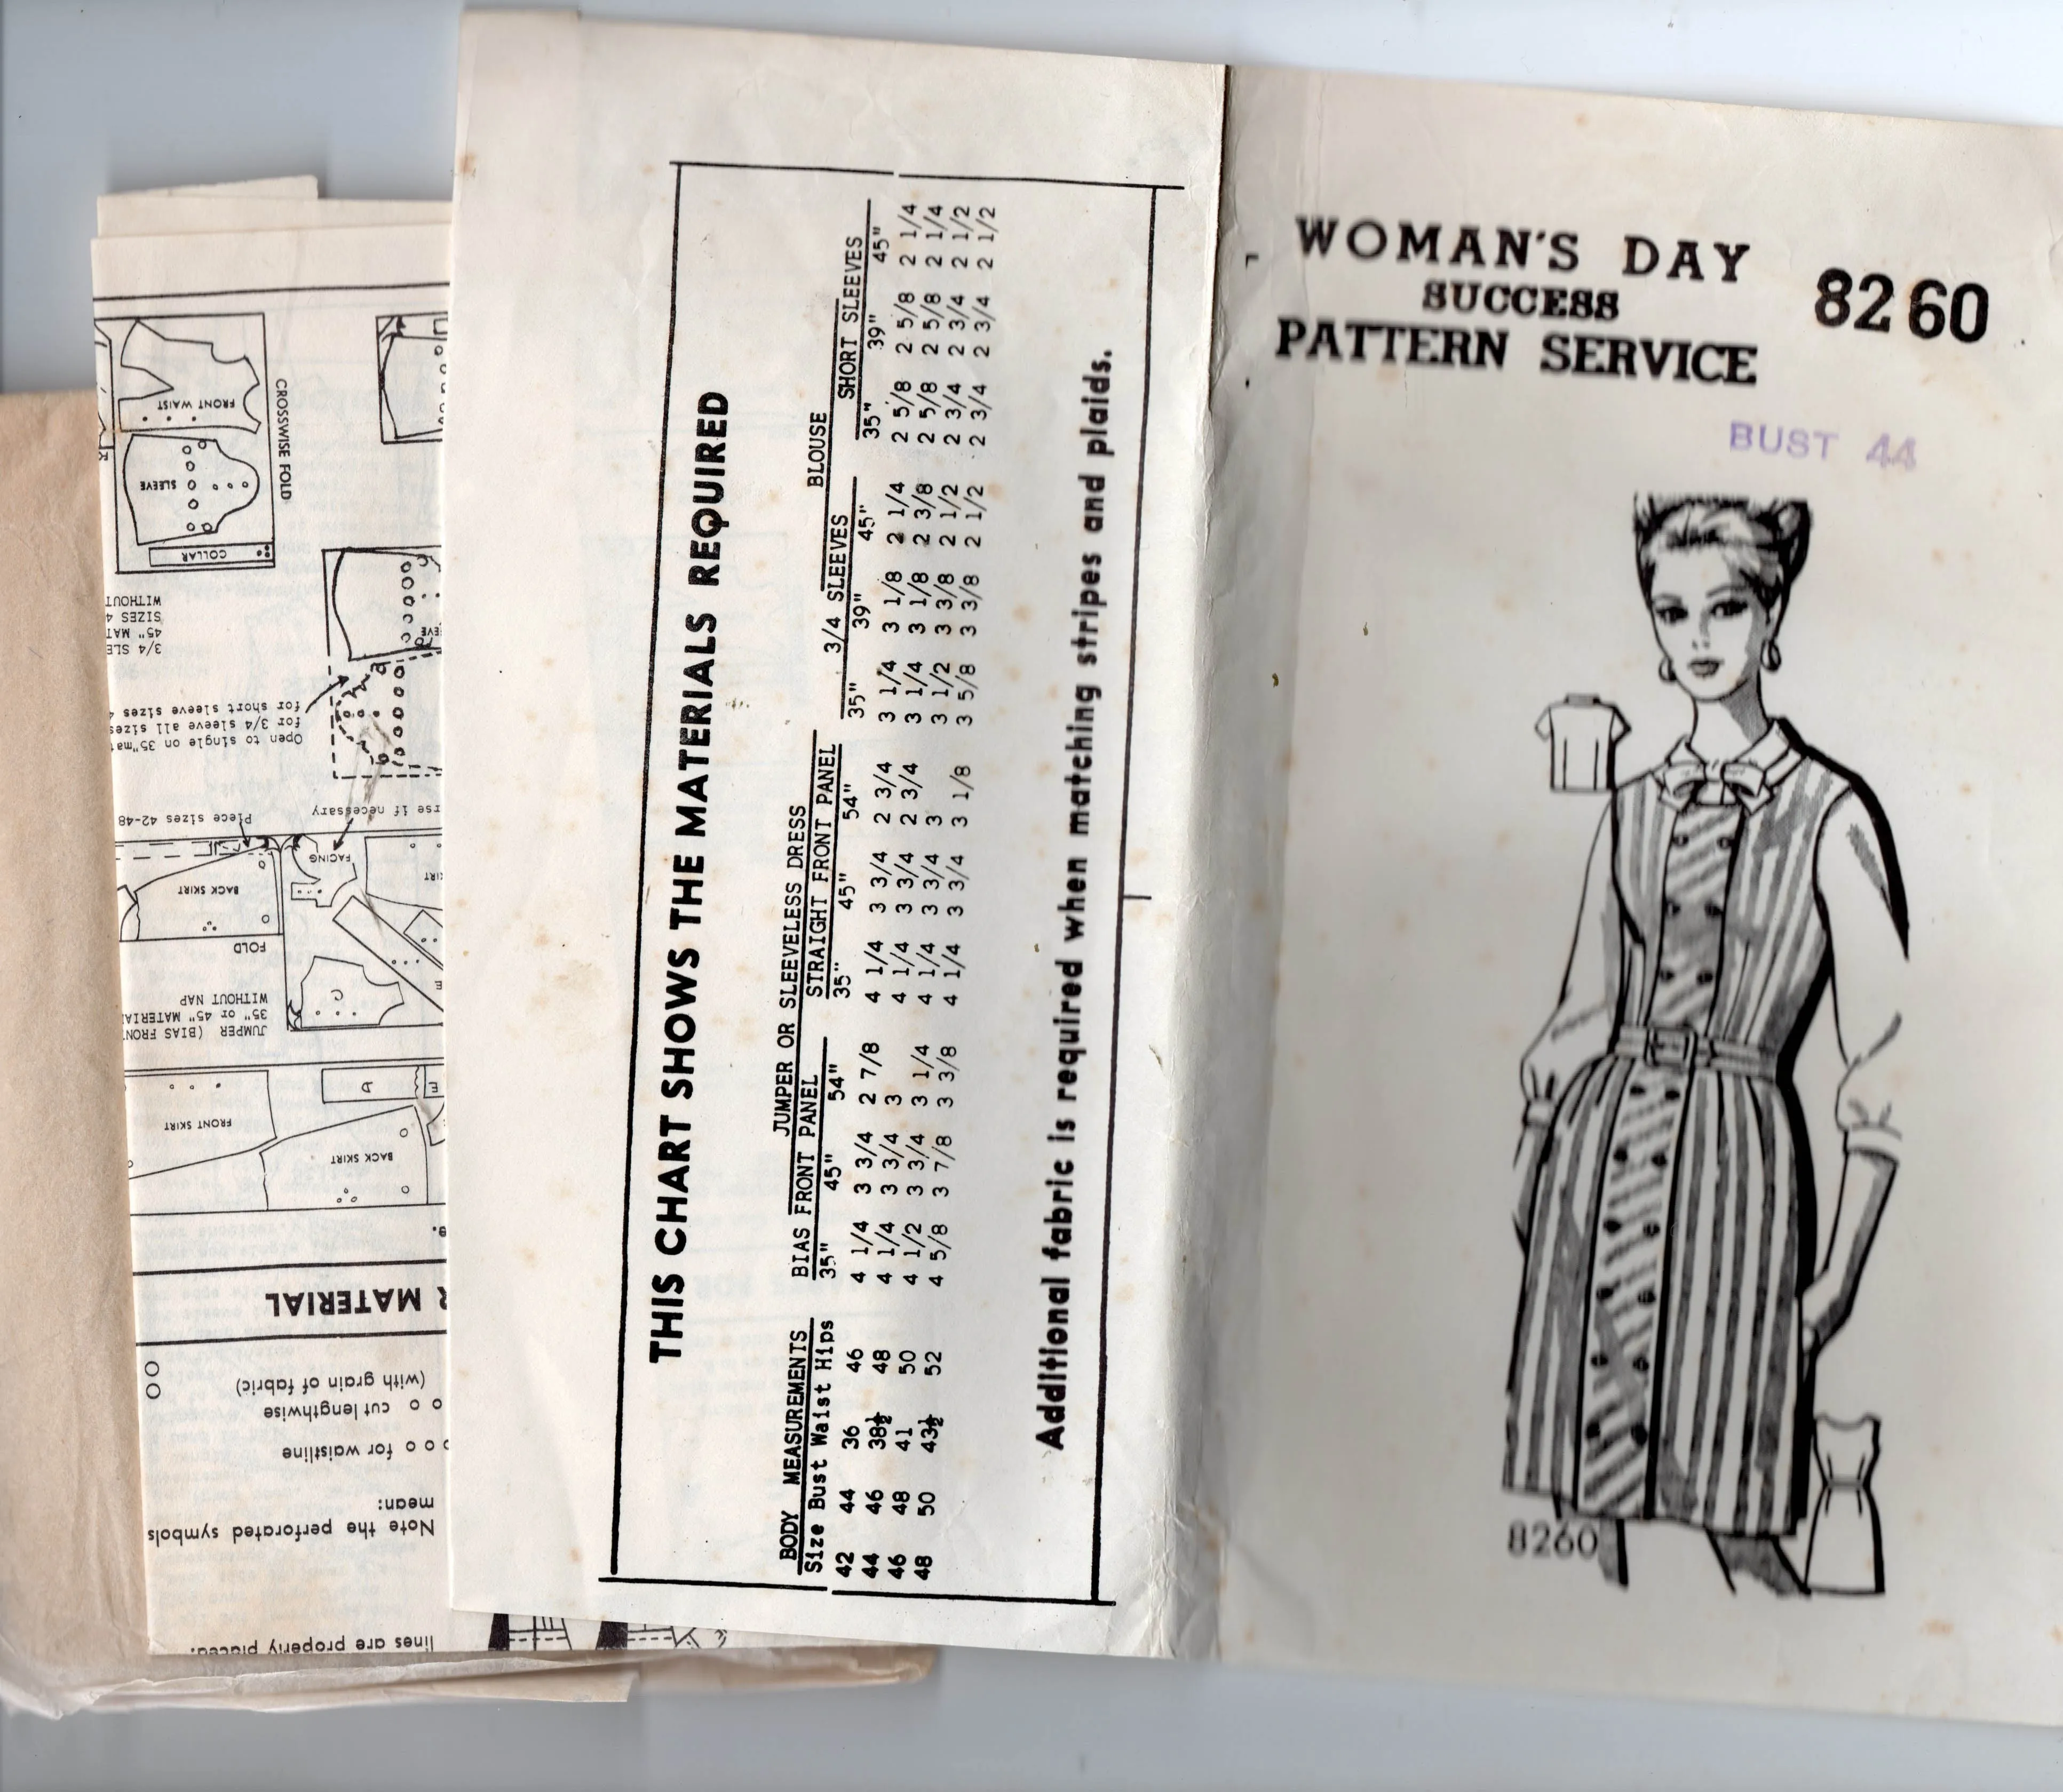 WOMAN'S DAY
SUCCESS
PATTERN SERVICE
8260
BUST 44
8260
THIS CHART SHOWS THE MATERIALS REQUIRED
JUMPER OR SLEEVELESS DRESS BLOUSE
BODY MEASUREMENTS BIAS FRONT PANEL STRAIGHT FRONT PANEL 3/4 SLEEVES SHORT SLEEVES
Size Bust Waist Hips 35" 45" 54" 35" 45" 54" 35" 39" 45" 35" 39" 45"
42 44 36 46 4 1/4 3 3/4 2 7/8 4 1/4 3 3/4 2 3/4 3 1/4 3 1/8 2 1/4 2 5/8 2 5/8 2 1/4
44 46 38½ 48 4 1/4 3 3/4 3 4 1/4 3 3/4 2 3/4 3 1/4 3 1/8 2 3/8 2 5/8 2 5/8 2 1/4
46 48 41 50 4 1/2 3 3/4 3 1/4 4 1/4 3 3/4 3 3 1/2 3 3/8 2 1/2 2 3/4 2 3/4 2 1/2
48 50 43½ 52 4 5/8 3 7/8 3 3/8 4 1/4 3 3/4 3 1/8 3 5/8 3 3/8 2 1/2 2 3/4 2 3/4 2 1/2
Additional fabric is required when matching stripes and plaids.
lines are properly placed.
Note the perforated symbols
mean:
o o o for waistline
o o cut lengthwise
(with grain of fabric)
MATERIAL
BACK SKIRT
FRONT SKIRT
D
E
JUMPER (BIAS FRONT
35" or 45" MATERIAL
WITHOUT NAP
FOLD
C
E
BACK SKIRT
FACING
Piece sizes 42-48
if necessary
Open to single on 35"
for 3/4 sleeve all sizes
for short sleeve sizes
3/4
45"
SIZES
WITHOUT
COLLAR
SLEEVE
FRONT WAIST
CROSSWISE FOLD